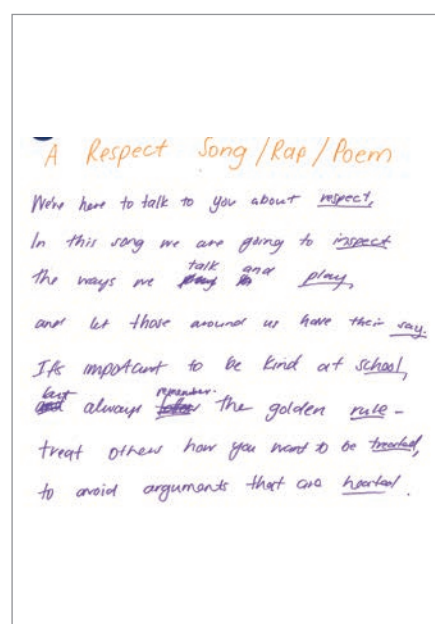 A Respect Song/Rap/Poem
We're here to talk to you about respect,
In this song we are going to inspect
the ways we talk and play,
and let those around us have their say.
It's important to be kind at school,
but always remember the golden rule -
treat others how you want to be treated,
to avoid arguments that are heated.